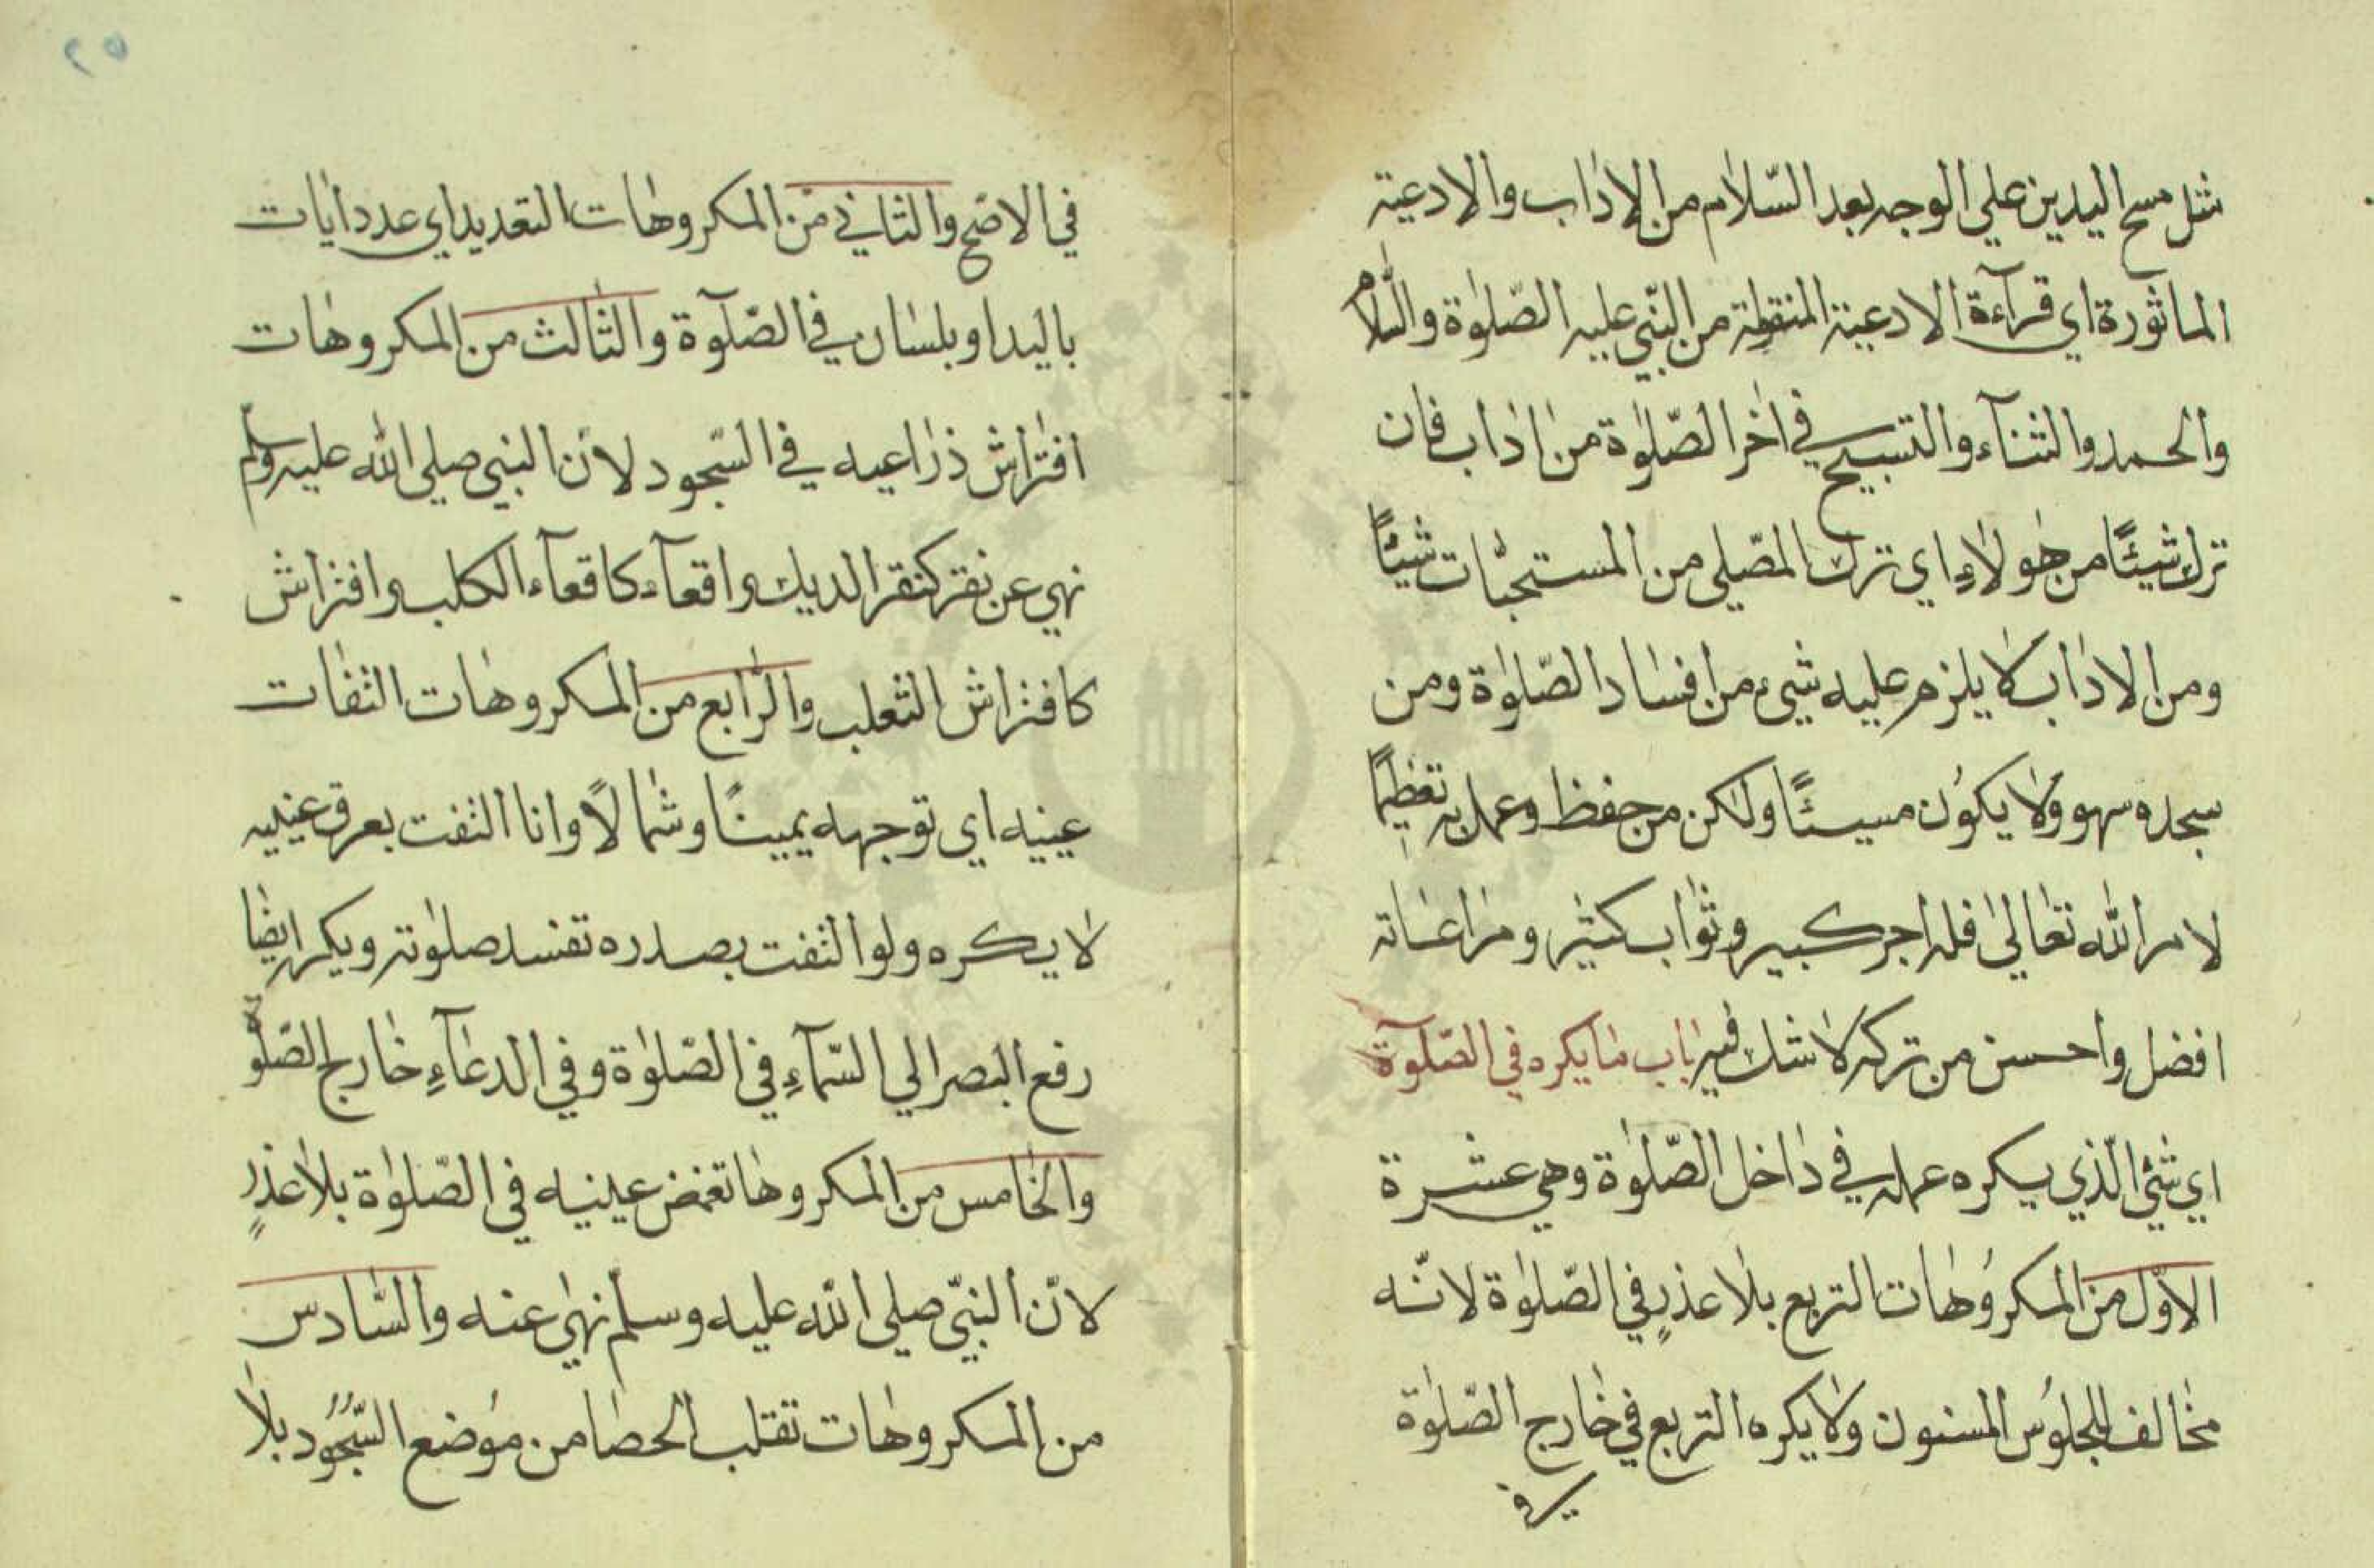 مثل مسح اليدين علي الوجه بعد السّلام من الاداب والادعية
الماثورة اي قرآءة الادعية المنقطة من النّبي عليه الصّلوة والسّلام
والحمد والثنآء والتسبيح في اخر الصّلوة من اداب فان
ترك شيئًا من هولاءِ اي ترك المصّلي من المستحبّات شيئًا
ومن الاداب لا يلزم عليه شيء من افساد الصّلوة ومن
سجده سهو ولا يكون مسيئًا ولكن من حفظ وعمل به تعظيمًا
لامر الله تعالي فله اجر كبير وثواب كثير ومراعاته
افضل واحسن من تركه لا شك فيه باب ما يكره في الصّلوة
اي شئ الّذي يكره عمله في داخل الصّلوة وهي عشرة
الاوّل من المكروهات التربع بلا عذرٍ في الصّلوة لانّه
مخالف للجلوس المسنون ولا يكره التربع في خارج الصّلوة
في
٢٥
في الاصّح والثاني من المكروهات التعديد اي عدد ايات
باليد او بلسان في الصّلوة والثالث من المكروهات
افتراش ذراعيه في السّجود لانّ النبي صلي الله عليه وسلم
نهي عن نقر كنقر الديك واقعآء كاقعآء الكلب وافتراش
كافتراش الثعلب والرّابع من المكروهات التفات
عينيه اي توجهه يمينًا وشمالًا وانا التفت بعرق عينيه
لا يكره ولو التفت بصدره تفسد صلوته ويكره ايضا
رفع البصر الي السّمآءِ في الصّلوة وفي الدعآءِ خارج الصّلوة
والخامس من المكروها تغمض عينيه في الصّلوة بلا عذرٍ
لانّ النبيّ صلي الله عليه وسلم نهي عنه والسّادس
من المكروهات تقلب الحصا من موضع السّجُود بلا